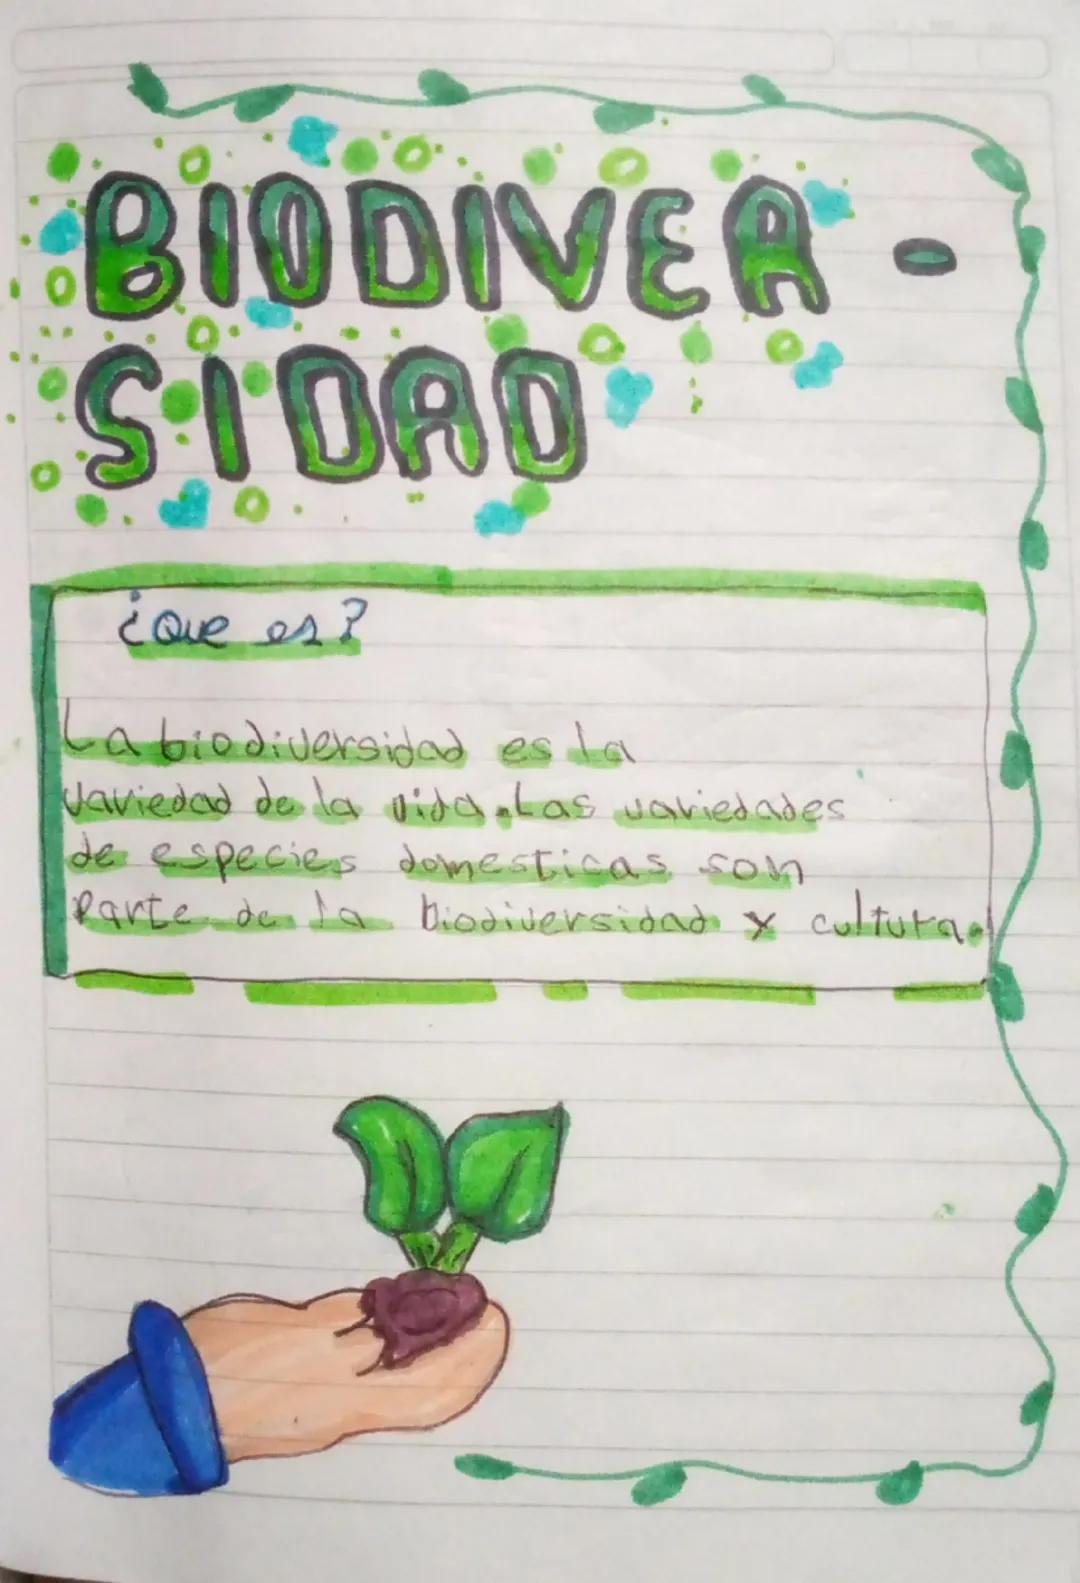 BIODIVER-
SIDAD
¿Que es?
La biodiversidad es la
variedad de la vida. Las variedades
de especies domesticas son
parte de la biodiversidad y cultura.